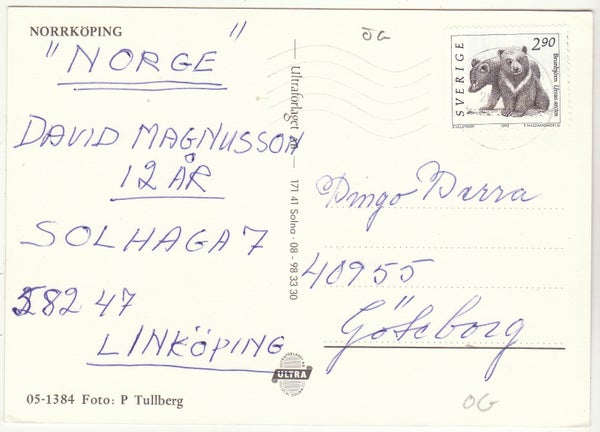 NORRKÖPING
"NORGE"
DAVID MAGNUSSON
12 ÅR
SOLHAGA 7
582 47
LINKÖPING
05-1384 Foto: P Tullberg
Ultraförlaget AB — 171 41 Solna · 08 - 98 33 30
ULTRA
ÖG
SVERIGE
2.90
Brunbjörn Ursus arctos
Dingo Darra
40955
Göteborg
OG